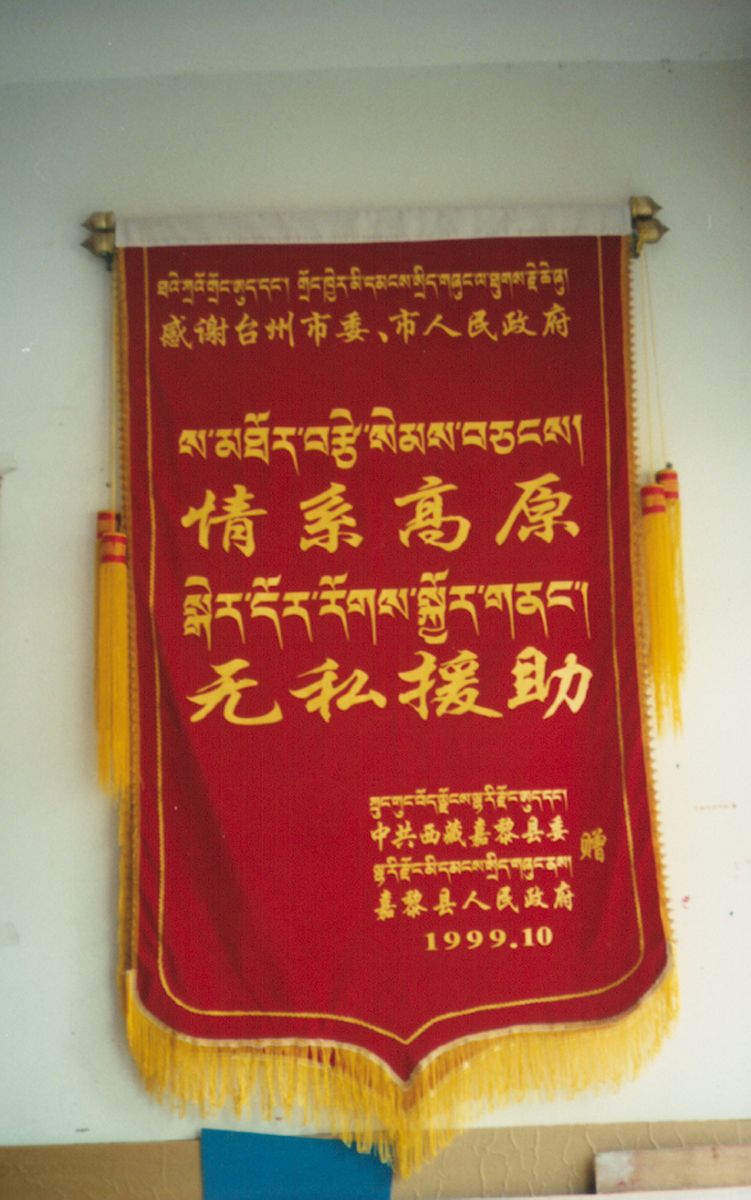 ཐའེ་ཀྲའོ་གྲོང་ཨུད་དང་། གྲོང་ཁྱེར་མི་དམངས་སྲིད་གཞུང་ལ་ཐུགས་རྗེ་ཆེ་ཞུ།
感谢台州市委、市人民政府
ས་མཐོར་བརྩེ་སེམས་བཅངས།
情系高原
སྒེར་དོར་རོགས་སྐྱོར་གནང་།
无私援助
ཀྲུང་གུང་བོད་ལྗོངས་ལྷ་རི་རྫོང་ཨུད་དང་།
中共西藏嘉黎县委
ལྷ་རི་རྫོང་མི་དམངས་སྲིད་གཞུང་ནས།
嘉黎县人民政府
赠
1999.10